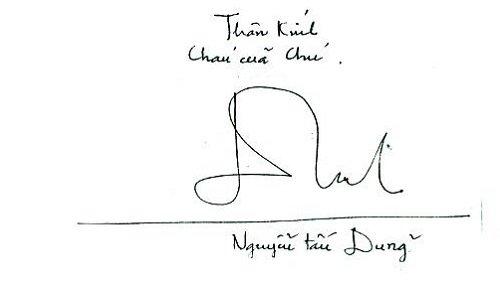 Thân Kính
Cháu của Chú.
Nguyễn tấn Dũng